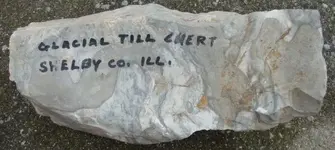 GLACIAL TILL CHERT
SHELBY CO. ILL.